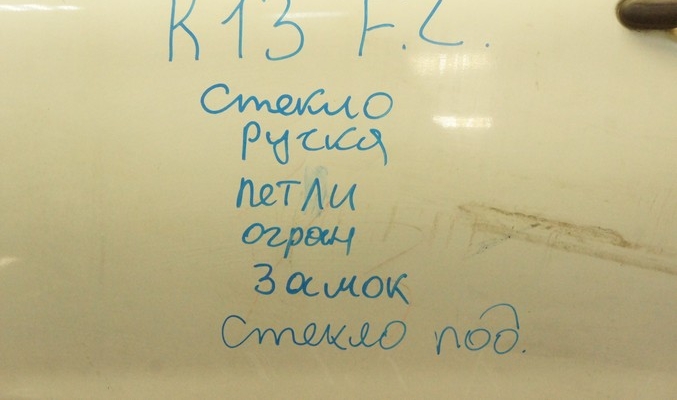 K13 F.L.
стекло
ручка
петли
огран
замок
стекло под.